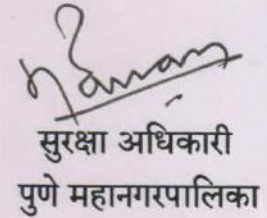 सुरक्षा अधिकारी
पुणे महानगरपालिका